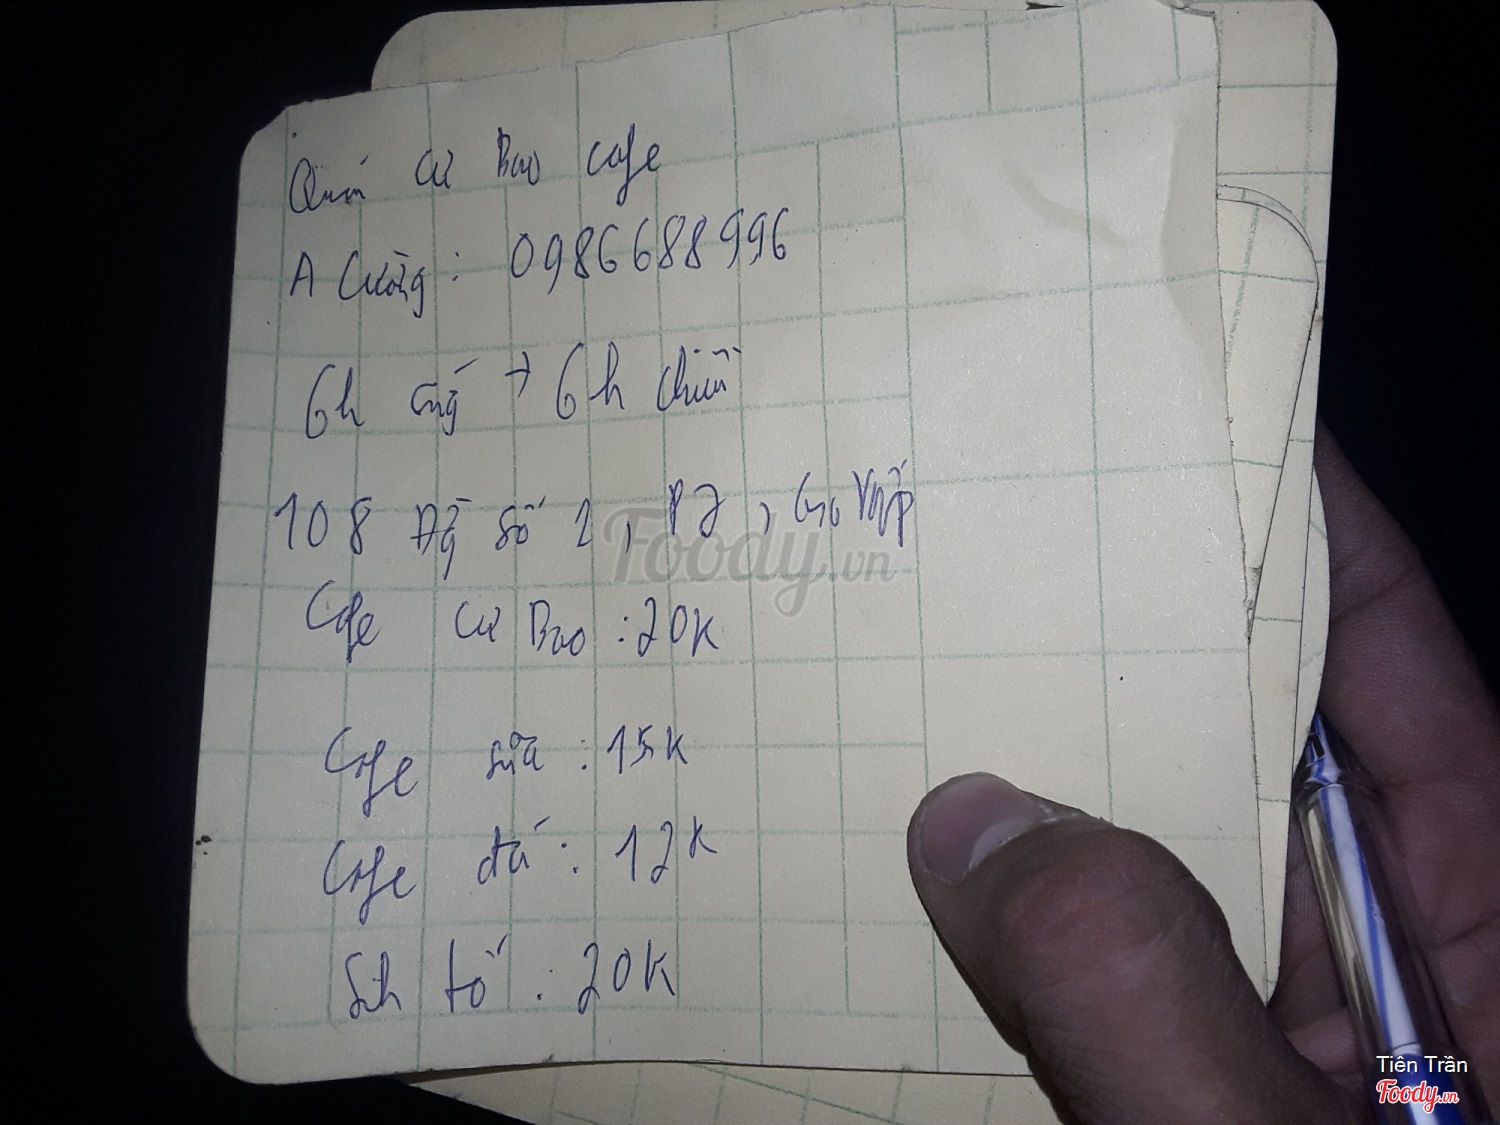 Quán Cư Bao cafe
A Cường: 0986688996
6h sáng → 6h chiều
108 Đg số 1, P7, Gò Vấp
Cafe Cư Bao: 20K
Cafe sữa: 15K
Cafe đá: 12K
Sinh tố: 20K
Foody.vn
Tiên Trần
Foody.vn